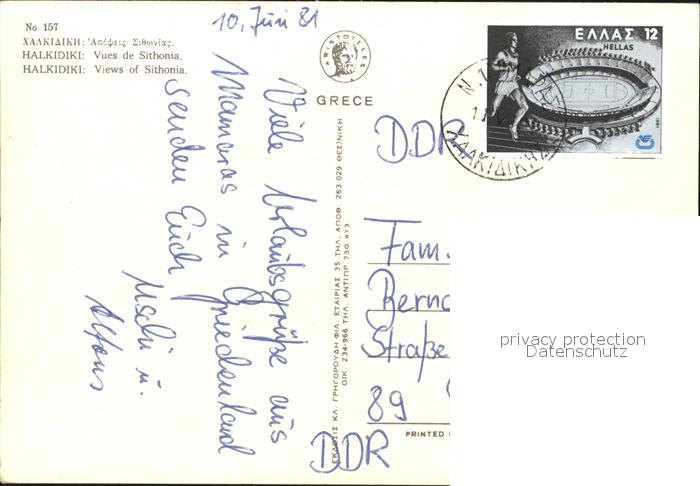 No 157
ΧΑΛΚΙΔΙΚΗ: Ἀπόψεις Σιθωνίας.
HALKIDIKI: Vues de Sithonia.
HALKIDIKI: Views of Sithonia.
10. Juni 81
Viele Urlaubsgrüße aus
Mameras in Griechenland
senden Euch
Uschi u.
Alfons
ARISTOTELES
GRECE
ΕΚΔΟΣΙΣ ΚΛ. ΓΡΗΓΟΡΟΥΔΗ ΦΙΛ. ΕΤΑΙΡΙΑΣ 35 ΤΗΛ. ΑΠΟΘ. 263.029 ΘΕΣ)ΝΙΚΗ
ΟΙΚ. 234-966 ΤΗΛ. ΑΝΤΙΠΡ. 730 473
ΕΛΛΑΣ 12
HELLAS
ΧΑΛΚΙΔΙΚΗΣ
DDR
Fam.
Bernd
Straße
89
DDR
PRINTED
privacy protection
Datenschutz